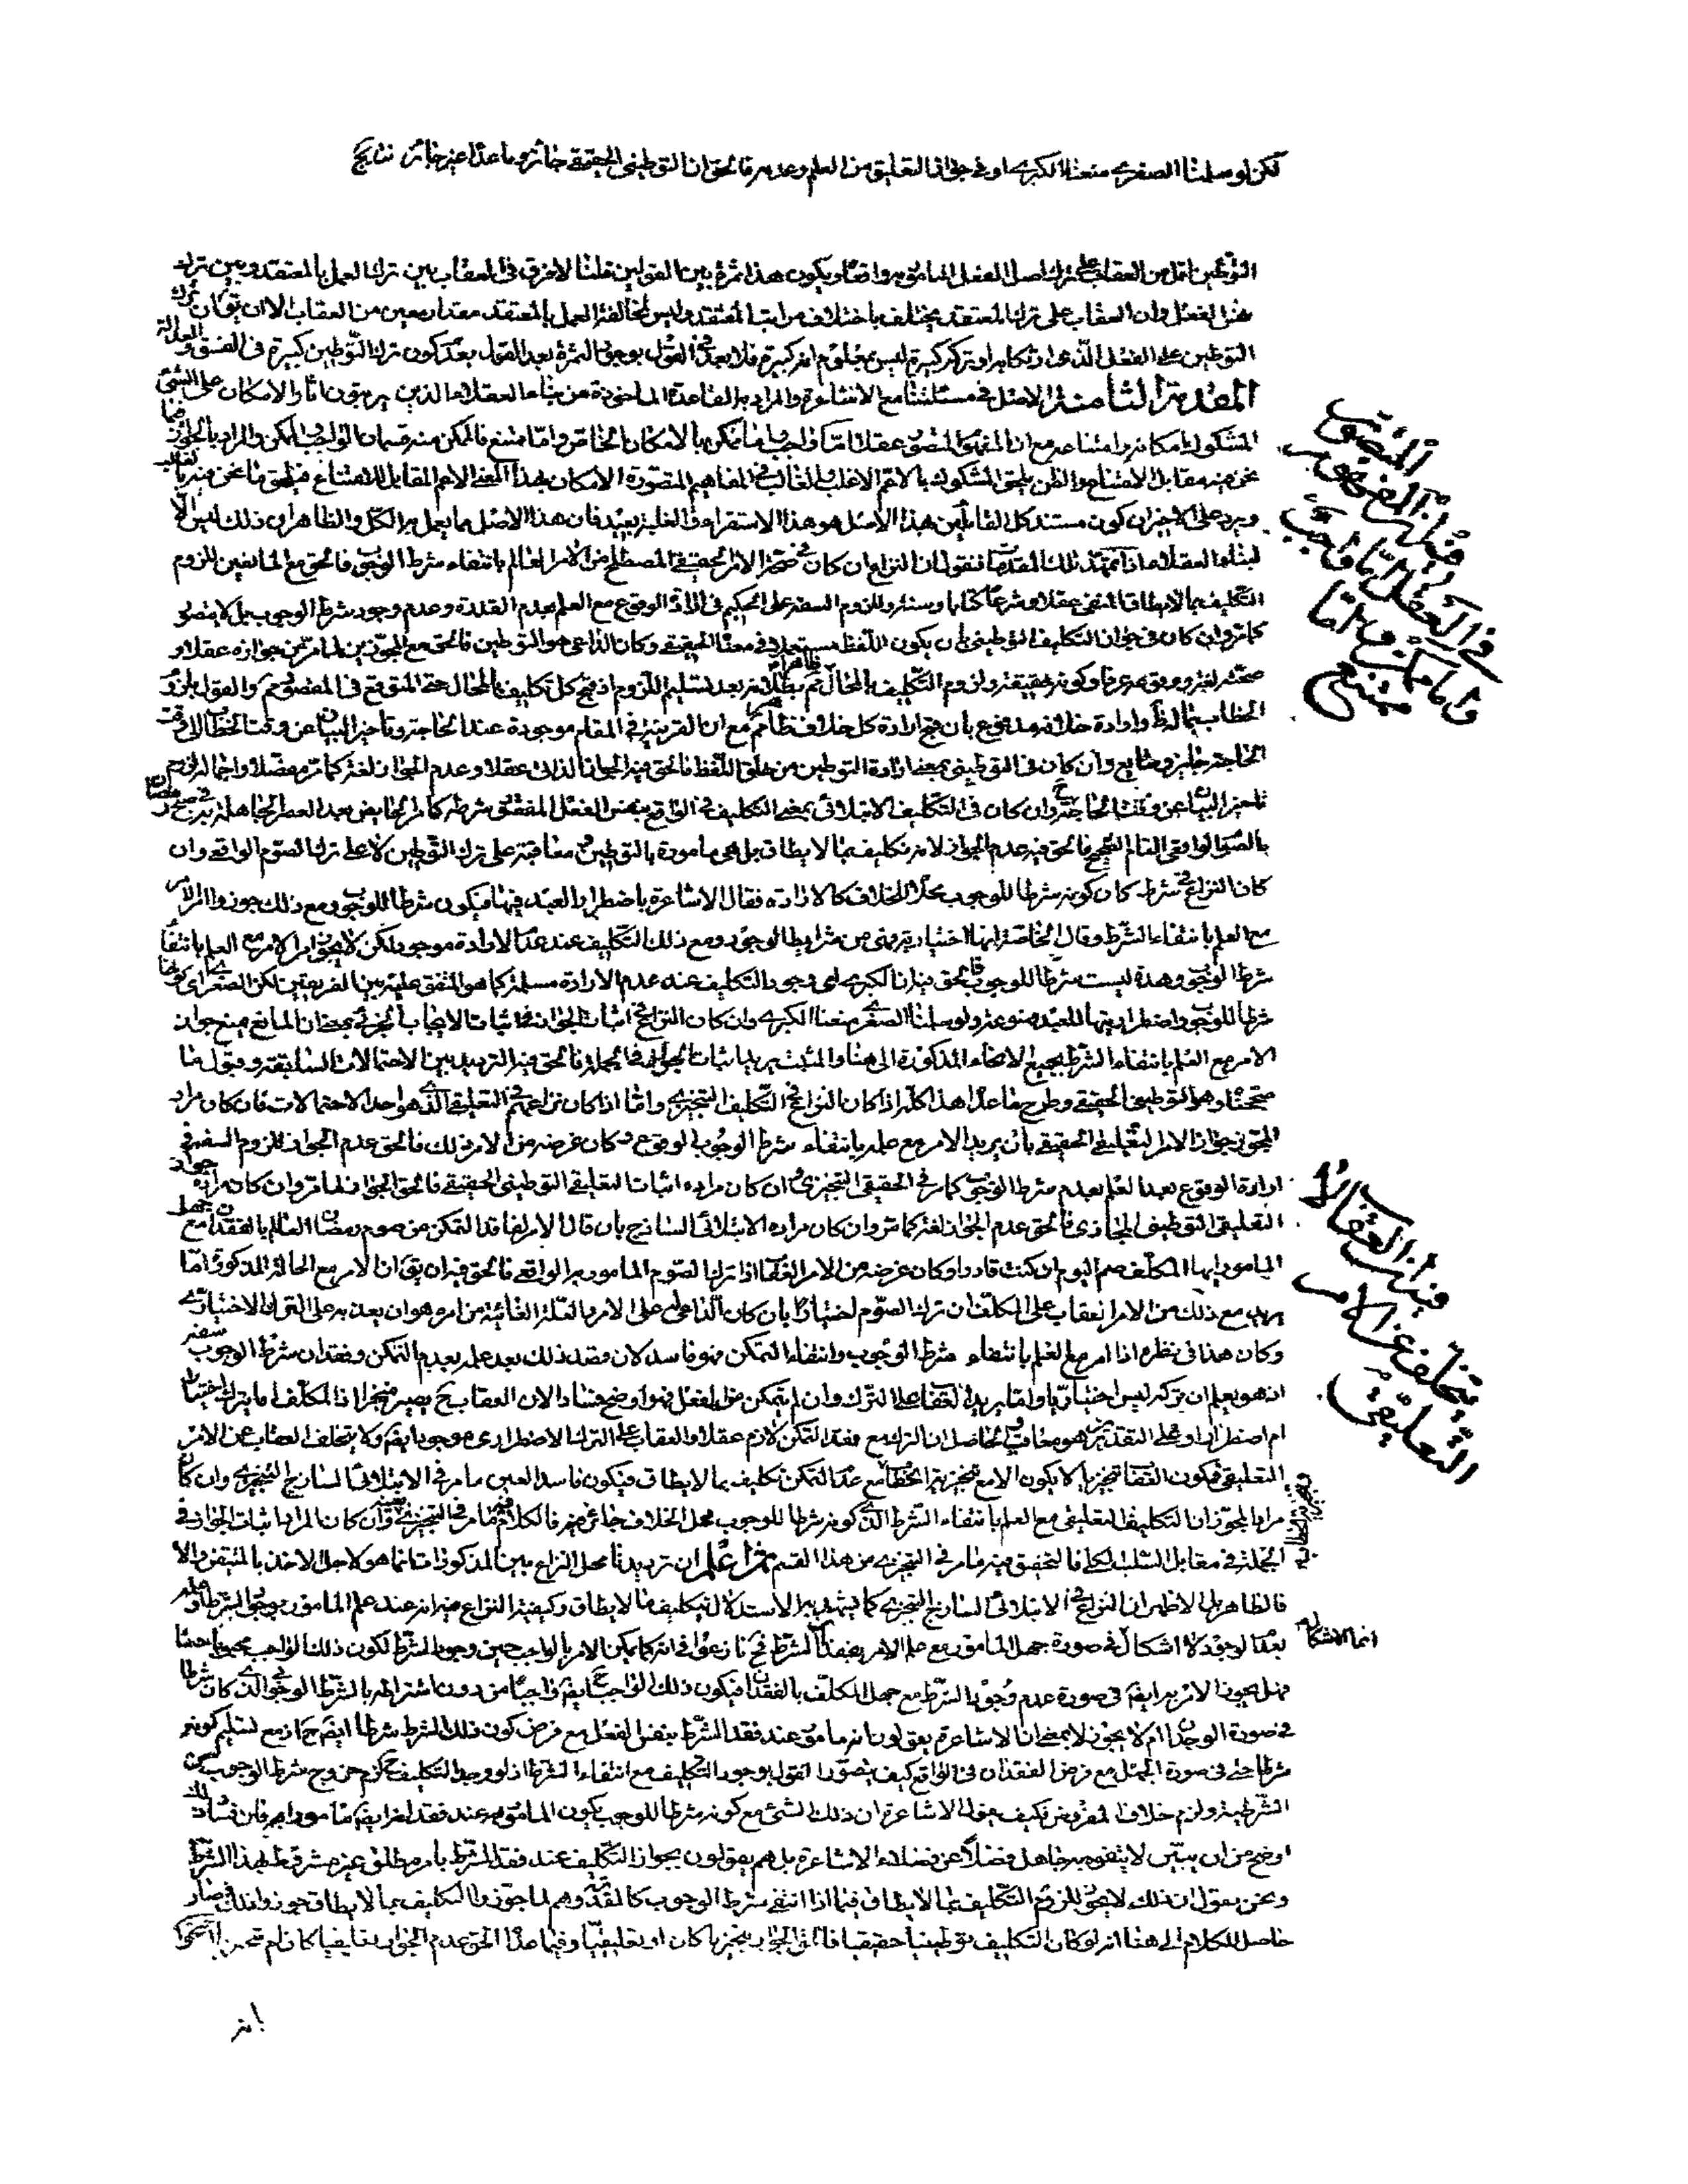 لكن لو سلمنا الصغرى منعنا الكبرى او في جواز التعليق من العلم وعدمه فالحق ان التوطيني الحقيقي جائز وما عداه غير جائز نتايج
التوطين اقل من العقاب على ترك اصل الفعل المامور به واقعا ويكون هذا ثمرة بين القولين قلنا لا فرق في العقاب بين ترك العمل بالمعتقد وبين ترك
نفس الفعل وان العقاب على ترك المعتقد يختلف باختلاف مراتب المعتقد وليس لمخالفة العمل بالمعتقد مقدار معين من العقاب الا ان يقال ترك
التوطين على الفعل الذي ارتكابه او تركه كبيرة ليس بمعلوم انه كبيرة فلا بعد في القول بوجود الثمرة بعد القول بعدم كون ترك التوطين كبيرة في الفسق والعدالة
المقدمة الثامنة الاصل في مسئلتنا مع الاشاعرة والمراد به القاعدة الماخوذة من بناء العقلاء الذين يرتبون اثار الامكان على الشيء
المشكوك امكانه وامتناعه مع ان المفهوم المتصور عقلا اما واجب واما ممكن بالامكان الخاص واما ممتنع فالممكن منه قسمان الواجب والممكن والمراد بالجواز فيما
نحن فيه مقابل الامتناع والظن يلحق المشكوك بالاعم الاغلب والغالب في المفاهيم المتصورة الامكان بهذا المعنى الاعم المقابل للامتناع فيلحق ما نحن فيه بالغالب
ويرد على الاخير ان كون مستند كل القائلين بهذا الاصل هو هذا الاستقراء والغلبة بعيد فان هذا الاصل مما يعمل به الكل والظاهر ان ذلك ليس الا
لبناء العقلاء اذا تمهد تلك المقدمات فنقول ان النزاع ان كان في صحة الامر الحقيقي المصطلح من الامر العالم بانتفاء شرط الوجوب فالحق مع المانعين للزوم
التكليف بما لا يطاق المنفي عقلا وشرعا كتابا وسنة وللزوم السفه على الحكيم في ارادة الوقوع مع العلم بعدم القدرة وعدم وجود شرط الوجوب بل لا يتصور
كما مر وان كان في جواز التكليف التوطيني بان يكون اللفظ مستعملا في معناه الحقيقي وكان الداعي هو التوطين فالحق مع المجوزين لما مر من جوازه عقلا و
صحته لغة ووقوعه عرفا وكونه حقيقة ولزوم التكليف بالمحال ثم بطلانه بعد تسليم اللزوم اذ قبح كل تكليف بالمحال حتى المتوقع في المفصوح ثم والقول بلزوم
الخطاب بما له ظاهر وارادة خلافه مدفوع بان قبح ارادة كل خلاف ظاهر ثم مع ان القرينة في المقام موجودة عند الحاجة وتاخير البيان عن وقت الخطاب الى وقت
الحاجة جايز وشايع وان كان في التوطيني بمعنى ارادة التوطين من حاق اللفظ فالحق فيه الجواز الذاتي عقلا وعدم الجواز لغة كما مر مفصلا واجمالا للزوم
تاخير البيان عن وقت الحاجة وان كان في التكليف الابتلائي بمعنى التكليف في الواقع بنفس الفعل المفقود شرطه كامر الحائض بعد العصر الجاهلة به في صبح رمضان
بالصوم الواقعي التام الصحيح فالحق فيه عدم الجواز لانه تكليف بما لا يطاق بل هي مامورة بالتوطين معاقبة على ترك التوطين لا على ترك الصوم الواقعي وان
كان النزاع في شرط كان كونه شرطا للوجوب محلا للخلاف كالارادة فقال الاشاعرة باضطرار العبد فيها فيكون شرطا للوجوب ومع ذلك جوزوا الامر
مع العلم بانتفاء الشرط وقال الخاصة انها اختيارية فهي من شرايط الوجود ومع ذلك التكليف عند عدم الارادة موجود لكن لا يجوز امر الامر مع العلم بانتفاء
شرط الوجوب وهذه ليست شرطا للوجوب فالحق فيه ان الكبرى اي وجود التكليف عند عدم الارادة مسلمة كما هو المتفق عليه بين الفريقين لكن الصغرى اي كونها
شرطا للوجوب واضطرارية للعبد ممنوعة ولو سلمنا الصغرى منعنا الكبرى وان كان النزاع في اثبات الجواز اثبات الايجاب الجزئي بمعنى ان المانع يمنع جواز
الامر مع العلم بانتفاء الشرط بجميع الانحاء المذكورة الى هنا والمثبت يريد اثبات الجواز في الجملة فالحق فيه الترديد بين الاحتمالات السابقة وقبول ما
صححناه وهو التوطيني الحقيقي وطرح ما عداه هذا كله اذا كان النزاع في التكليف التنجيزي واما اذا كان نزاعهم في التعليقي الذي هو احد الاحتمالات فان كان مراد
المجوز جواز الامر التعليقي الحقيقي بان يريد الامر مع علمه بانتفاء شرط الوجوب الوقوع وكان غرضه من الامر ذلك فالحق عدم الجواز للزوم السفه في
ارادة الوقوع بعد العلم بعدم شرط الوجوب كما مر في الحقيقي التنجيزي وان كان مراده اثبات التعليقي التوطيني الحقيقي فالحق الجواز لما مر وان كان مراده جواز
التعليقي التوطيني المجازي فالحق عدم الجواز لغة كما مر وان كان مراده الابتلائي الساذج بان قال الامر لفاقد التمكن من صوم رمضان العالم بالفقد مع جهل
المامور ايها المكلف صم اليوم ان كنت قادرا وكان غرضه من الامر العقاب اذا ترك الصوم المامور به الواقعي فالحق فيه ان يقال ان الامر مع الحالة المذكورة اما
يريد مع ذلك من الامر العقاب على المكلف ان ترك الصوم اختيارا بان كان الداعي له على الامر بالعلة الغائية من امره هو ان يعذبه على الترك الاختياري
وكان هذا في نظره اذا امر مع العلم بانتفاء شرط الوجوب وانتفاء التمكن فهو فاسد لان قصد ذلك بعد علمه بعدم التمكن وفقدان شرط الوجوب سفه
اذ هو يعلم ان تركه ليس اختياريا واما يريد العقاب على الترك وان لم يتمكن من الفعل فهو اوضح فسادا لان العقاب ح يصير منجزا اذ المكلف اما يترك اختيارا
ام اضطرارا وعلى التقديرين هو معاقب والحاصل ان الترك مع فقد التمكن لازم عقلا والعقاب على الترك الاضطراري موجود ايضا ولا يتخلف العقاب عن الامر
التعليقي فيكون العقاب تنجيزيا لا يكون الا مع تنجيزية الخطاب مع عدم التمكن تكليف بما لا يطاق فيكون فاسدا لعين ما مر في الابتلائي الساذج التنجيزي وان كان
مراد المجوز ان التكليف التعليقي مع العلم بانتفاء الشرط الذي كونه شرطا للوجوب محل الخلاف جائز فالكلام فيه كما مر في التنجيزي وان كان المراد اثبات الجواز في
الجملة في مقابل السلب الكلي فالتحقيق فيه ما مر في التنجيزي من هذا القسم ثم اعلم ان ترديدنا محل النزاع بين المذكورات انما هو لاجل الاخذ بالمتيقن والا
فالظاهر بل الاظهر ان النزاع في الابتلائي الساذج التنجيزي كما يشهد به الاستدلال بتكليف ما لا يطاق وكيفية النزاع فيه انه عند علم المامور بوجود الشرط وعلمه
بعدم الوجود لا اشكال في صورة جهل المامور مع علم الامر بفقد الشرط فح نازعوا في انه كما يكون الامر بالواجب حين وجود الشرط لكون ذلك الواجب
فهل يجوز الامر به ايضا في صورة عدم وجود الشرط مع جهل المكلف بالفقدان فيكون ذلك الواجب ح ايضا واجبا من دون اشتراطه بالشرط الوجوبي الذي كان شرطا
في صورة الوجدان ام لا يجوز لا بمعنى ان الاشاعرة يقولون انه مامور عند فقد الشرط بنفس الفعل مع فرض كون ذلك الشرط شرطا ايضا ح اذ مع تسليم كونه
شرطا حتى في صورة الجهل مع فرض الفقدان في الواقع كيف يتصور القول بوجود التكليف مع انتفاء الشرط اذ لو وجد التكليف ح لزم خروج شرط الوجوب عن
الشرطية ولزم خلاف المفروض فكيف يقول الاشاعرة ان ذلك الشيء مع كونه شرطا للوجوب يكون المامور به عند فقده ايضا مامورا به فان فساد ذلك
اوضح من ان يبين لا يتفوه به جاهل فضلا عن فضلاء الاشاعرة بل هم يقولون بجواز التكليف عند فقد الشرط بامر مطلق غير مشروط بهذا الشرط
ونحن نقول ان ذلك لا يجوز للزوم التكليف بما لا يطاق فيما اذا انتفى شرط الوجوب كالقدرة وهم لما جوزوا التكليف بما لا يطاق جوزوا ذلك فصار
حاصل الكلام الى هنا انه لو كان التكليف توطينيا حقيقيا فالحق الجواز تنجيزيا كان او تعليقيا وفيما عداه الحق عدم الجواز تعليقيا كان ام تنجيزيا
المتصور
في العقل اما واجب
واما ممكن واما
ممتنع
التعليقي
انما الاشكال